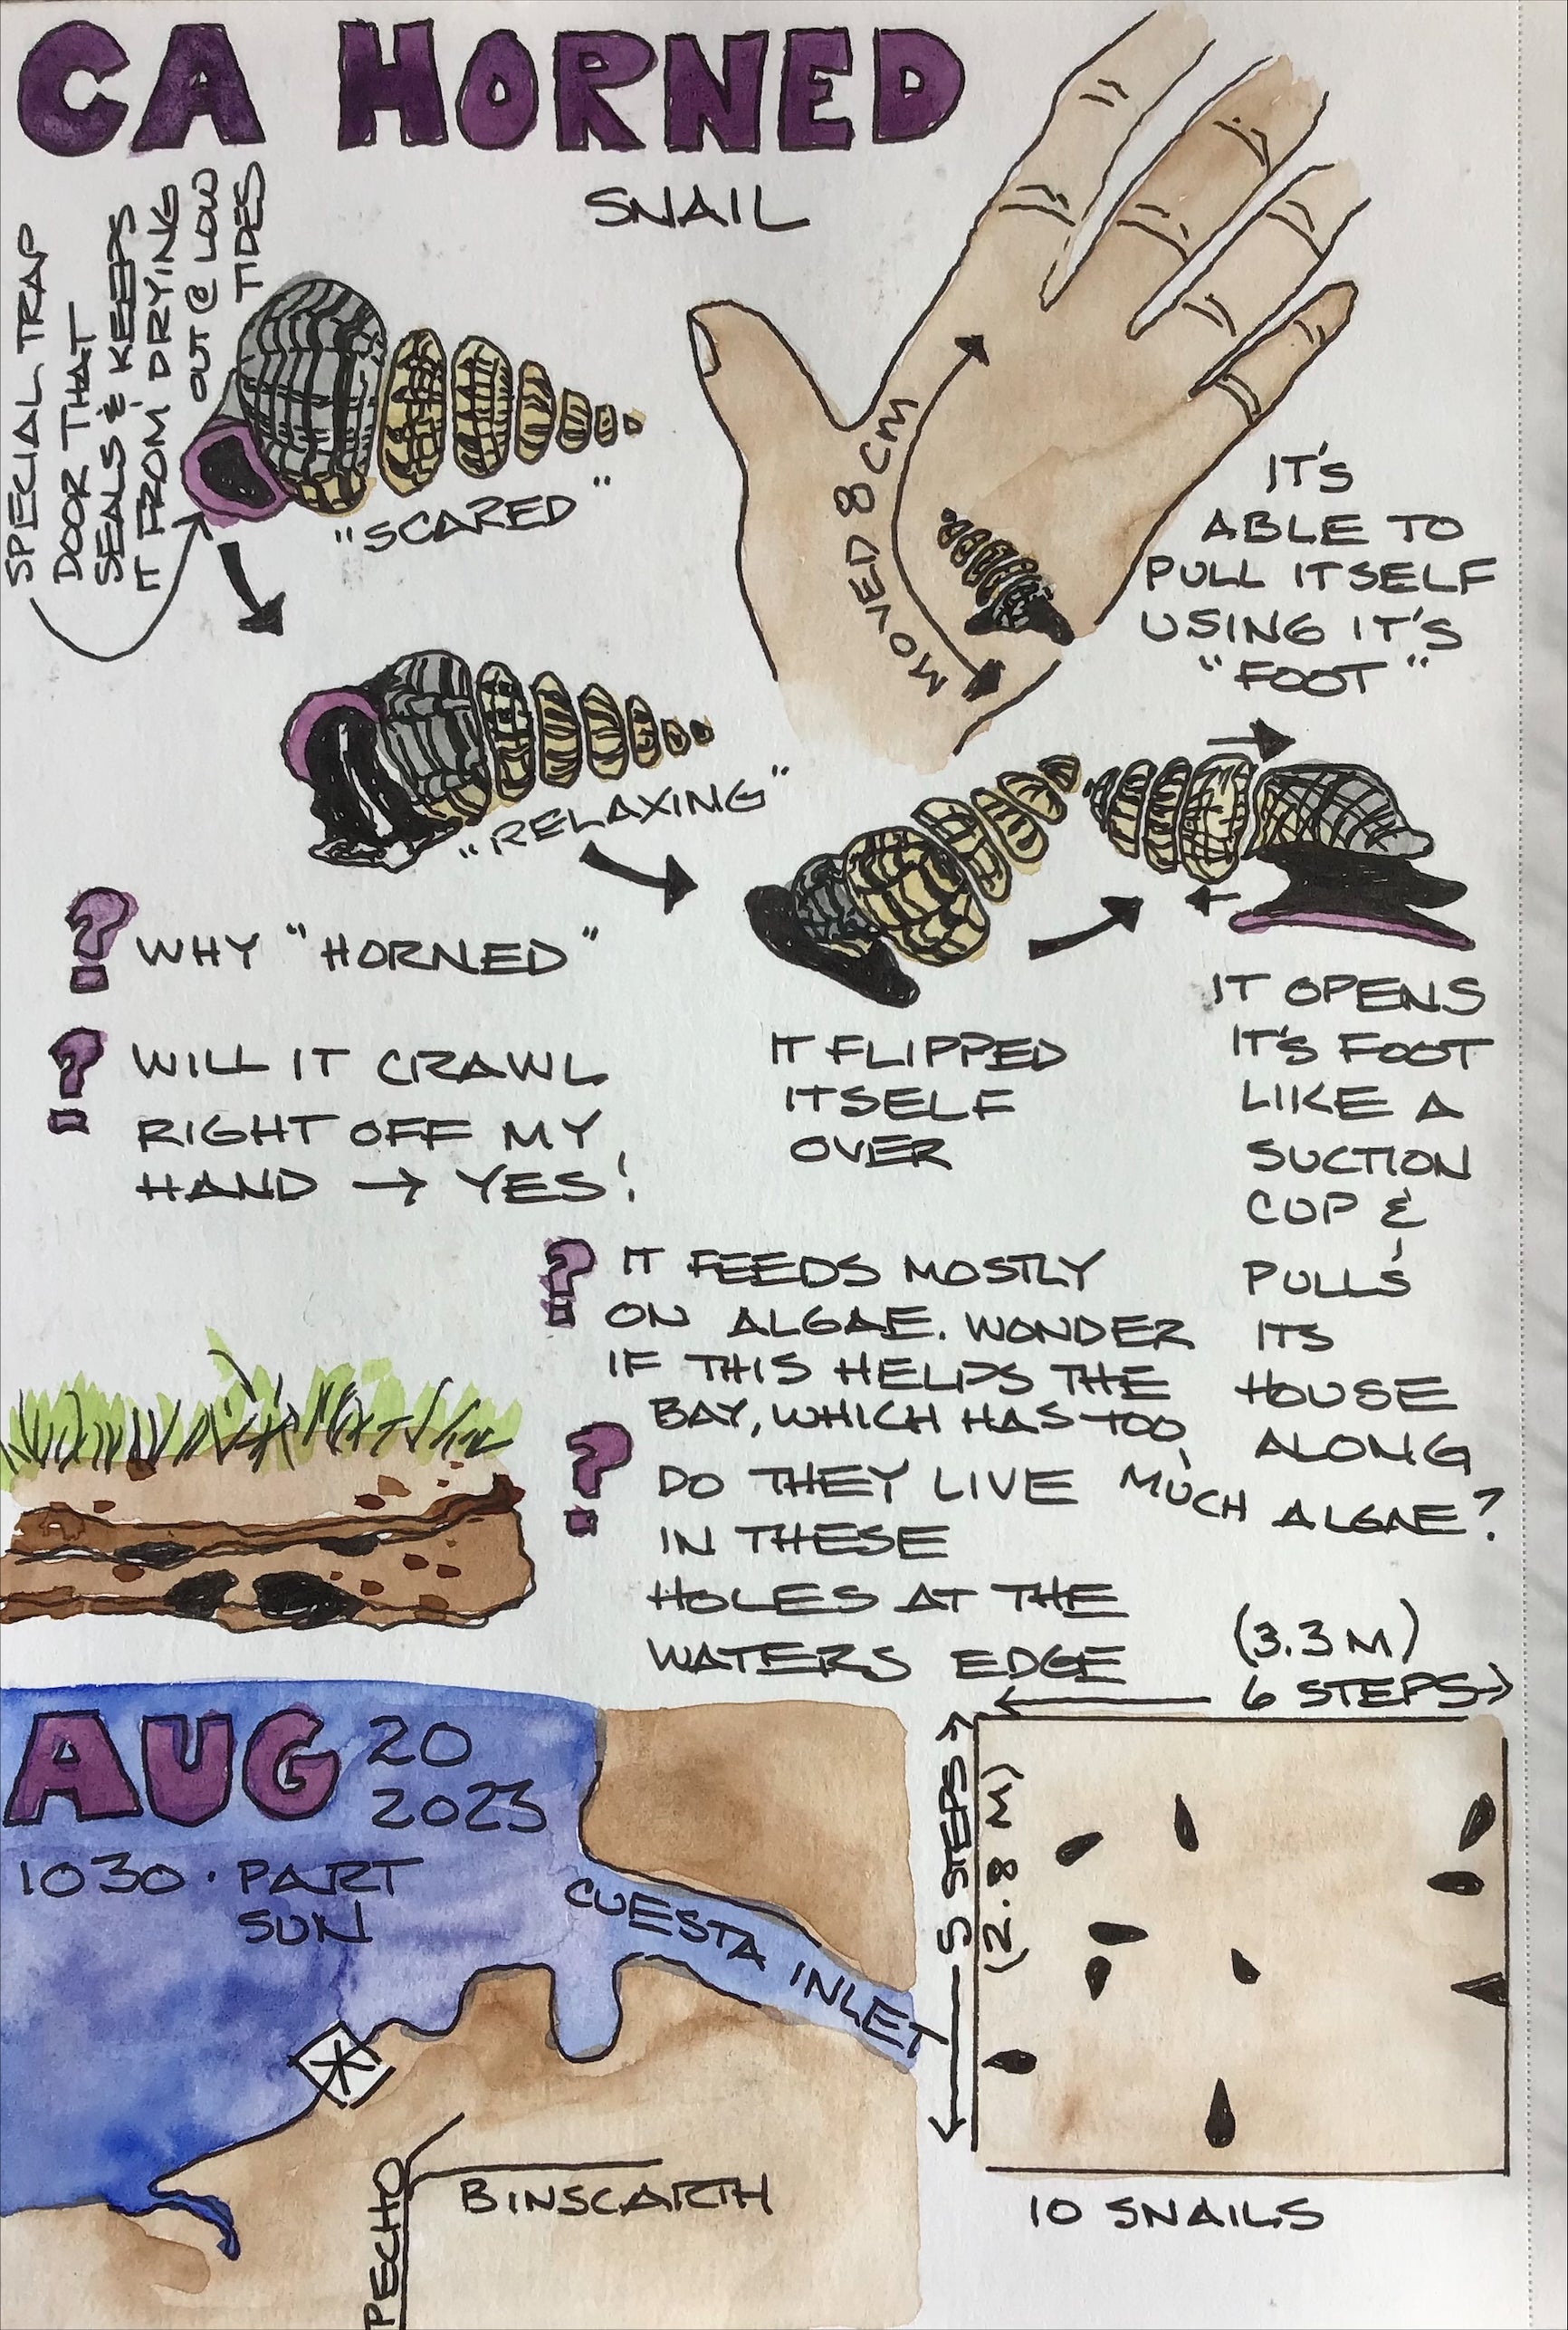 CA HORNED
SNAIL
SPECIAL TRAP
DOOR THAT
SEALS & KEEPS
IT FROM DRYING
OUT @ LOW
TIDES
"SCARED"
MOVED 8 CM
IT'S
ABLE TO
PULL ITSELF
USING IT'S
"FOOT"
"RELAXING"
? WHY "HORNED"
? WILL IT CRAWL
RIGHT OFF MY
HAND → YES!
IT FLIPPED
ITSELF
OVER
IT OPENS
IT'S FOOT
LIKE A
SUCTION
CUP &
PULLS
ITS
HOUSE
ALONG
? IT FEEDS MOSTLY
ON ALGAE. WONDER
IF THIS HELPS THE
BAY, WHICH HAS TOO
MUCH ALGAE?
? DO THEY LIVE
IN THESE
HOLES AT THE
WATERS EDGE
AUG 20
2023
1030 · PART
SUN
CUESTA INLET
PECHO
BINSCARTH
(3.3 M)
6 STEPS
5 STEPS
(2.8 M)
10 SNAILS